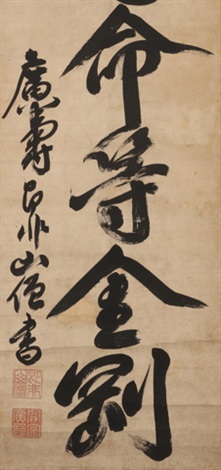 命等金剛
廣壽即非山僧書